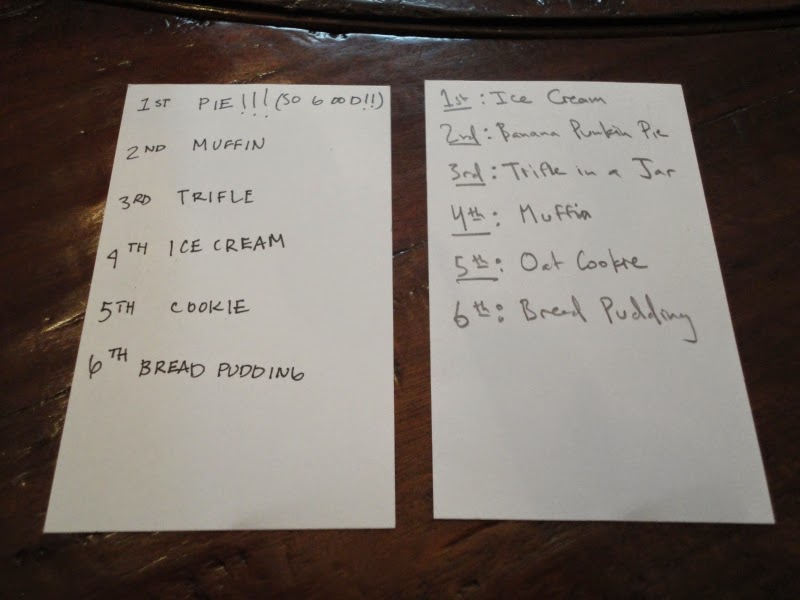 1ST PIE!!! (SO GOOD!!)
2ND MUFFIN
3RD TRIFLE
4TH ICE CREAM
5TH COOKIE
6TH BREAD PUDDING
1st: Ice Cream
2nd: Banana Pumkin Pie
3rd: Trifle in a Jar
4th: Muffin
5th: Oat Cookie
6th: Bread Pudding